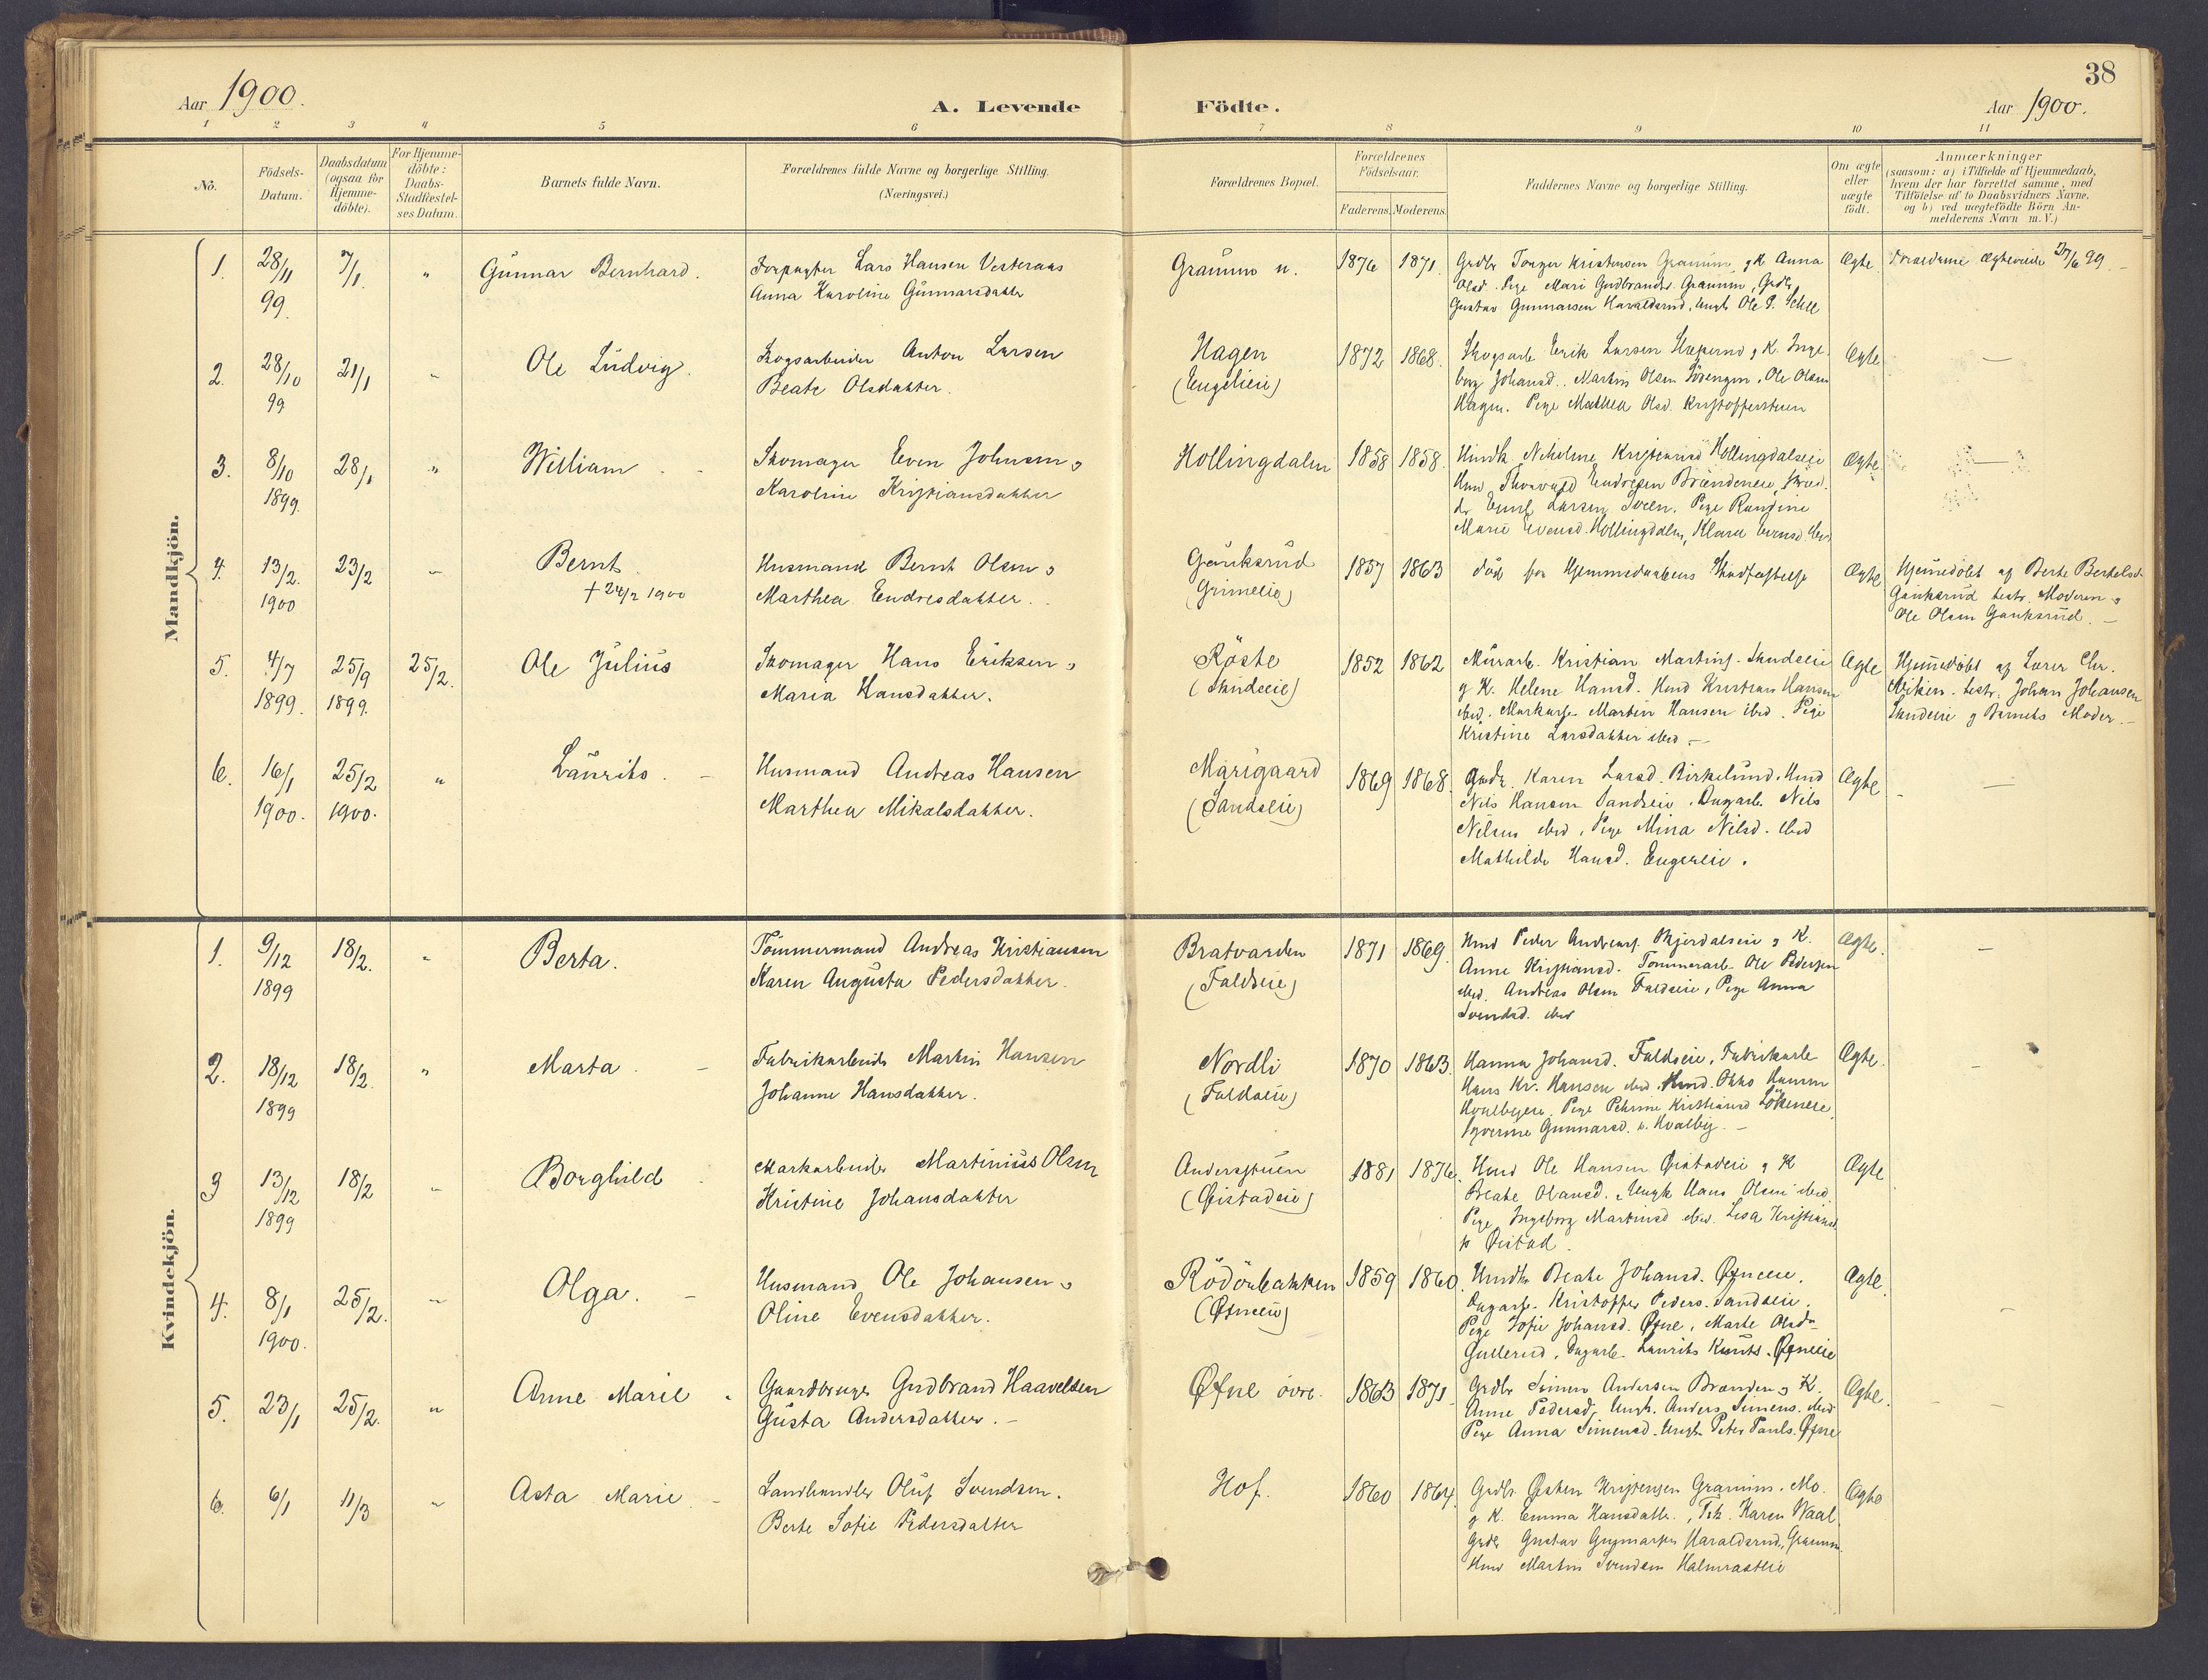 38
Aar 1900.
A. Levende Födte.
Aar 1900.
1 2 3 4 5 6 7 8 9 10 11
No.
Födsels-
Datum.
Daabsdatum
(ogsaa for
Hjemme-
döbte).
For Hjemme-
döbte:
Daabs-
Stadfæstel-
ses Datum.
Barnets fulde Navn.
Forældrenes fulde Navne og borgerlige Stilling.
(Næringsvei.)
Forældrenes Bopæl.
Forældrenes
Födselsaar.
Faderens. Moderens.
Faddernes Navne og borgerlige Stilling.
Om ægte
eller
uægte
födt.
Anmærkninger
(saasom: a) i Tilfælde af Hjemmedaab,
hvem der har forrettet samme, med
Tilföielse af to Daabsvidners Navne,
og b) ved uægtefödte Börn An-
melderens Navn m. V.)
Mandkjön.
1. 28/11 99. 7/1. " Gunnar Bernhard.
Forpagter Lars Hansen Vesteraas
Anna Karoline Gunnarsdatter
Graumo n. 1876 1871.
Grdbr Torger Kristensen Graumo, g K. Anna
Olsd. Pige Mari Gudbrandsd. Graumo, Grdb.
Gustav Gunnarsen Haraldsrud, Ungk Ole P.
Ægte
Forældrene Ægteviede 27/6 99.
2. 28/10 99 21/1 " Ole Ludvig.
Skogsarbeider Anton Larsen
Beate Olsdatter.
Hagen
(Engelieie)
1872 1868.
Skogsarb Erik Larsen g K. Inge-
borg Johansd. Martin Olsen, Ole Olsen
Hagen. Pige Mathea Olsd. Kristofferstuen
Ægte —
3. 8/10 1899. 28/1 " William
Skomager Even Johnsen g
Karoline Kristiansdatter
Hollingdalen 1858 1858.
Kristensd Hollingdalseie
Hmd. Thorvald Endresen Brændeneie,
Emil Larsen Pige Randine
Marie Evensd. Hollingdalen, Klara Evensd. ibid
Ægte —
4. 13/2. 1900 23/2 " Bernt
+ 24/2 1900
Husmand Bernt Olsen g
Marthea Endresdatter.
Gauksrud
(Grimeeie)
1857 1863
död før Hjemmedaabens Stadfæstelse
Ægte
Hjemmedöbt af Berte Bertelsd.
Gauksrud testr. Moderen g
Ole Olsen Gauksrud. —
5. 4/7 1899. 25/9 1899. 25/2. Ole Julius
Skomager Hans Eriksen g
Maria Hansdatter.
Röste
(Skudseie)
1852 1862
Murarb. Kristian Martins. Skudseie
g K. Helene Hansd. Hmd Kristian Hansen
ibid. Markarb. Martin Hansen ibid. Pige
Kristine Larsdatter ibid —
Ægte
Hjemmedöbt af Lærer Chr.
testr. Johan Johansen
Skudseie g Barnets Moder. —
6. 16/1 1900. 25/2 1900. " Laurits.
Husmand Andreas Hansen
Marthea Mikalsdatter.
Marigaard
(Sandseie)
1869 1868.
Karen Larsd. Birkelund. Hmd
Nils Hansen Sandseie. Dagarb. Nils
Nilsen ibid, Pige Mina Nilsd. ibid
Mathilde Hansd. Engereie.
Ægte —
Kvindekjön.
1. 9/12 1899 18/2. " Berta.
Tömmermand Andreas Kristiansen
Karen Augusta Pedersdatter.
Bratvarden
(Faldseie)
1871 1869.
Hmd Peder Andreas. g K.
Anne Kristiansd. Tömmerarb. Ole Pedersen
ibid. Andreas Olsen Faldseie, Pige Anna
Svendsd. ibid
Ægte. —
2. 18/12 1899 18/2. " Marta.
Fabrikarbeider Martin Hansen
Johanne Hansdatter.
Nordli
(Faldseie)
1870 1863.
Hanna Johansd. Faldseie, Fabrikarb
Hans Kr. Hansen ibid. Hmd. Otto Hansen
Hvalbyeie. Pige Petrine Kristiansd Lökeneie,
Gunnarsd. n. Hvalby. —
Ægte. —
3 13/12 1899 18/2 " Borghild
Markarbeider Martinius Olsen
Kristine Johansdatter
Anderstuen
(Öistadeie)
1881 1876.
Hmd Ole Hansen Öistadeie g K
Beate Olausd. Ungk Hans Olsen ibid.
Pige Ingeborg Martinsd ibid. Lisa Kristiansd
p Öistad.
Ægte
4. 8/1 1900. 25/2. " Olga.
Husmand Ole Johansen g
Oline Evensdatter.
Rödöibakken
(Øfneeie)
1859 1860.
Hmdk. Beate Johansd. Øfneeie.
Dagarb. Kristoffer Peders. Sandseie.
Pige Sofie Johansd. Øfne, Marte Olsd.
Gullerud, Dagarb. Laurits Knuts. Øfneeie
Ægte. —
5. 23/1 25/2. " Anne Marie
Gaardbruger Gudbrand Haavelsen
Gusta Andersdatter. —
Øfne övre. 1863 1871
Grdbr Simen Andersen Brænden g K.
Anne Pedersd, Ungk. Anders Simens. ibid
Pige Anna Simensd. Ungk Peter Pauls. Øfne
Ægte. —
6. 6/1 11/3 " Asta Marie
Landhandler Oluf Svendsen.
Berte Sofie Pedersdatter
Hof. 1860 1864.
Grdbr. Østen Kristensen Graumo. Mo.
g K. Emma Hansdatter. Karen Waal.
Grdbr Gustav Gunnarsen Haraldsrud, Graumo.
Hmd Martin Svendsen Halmrasteie
Ægte